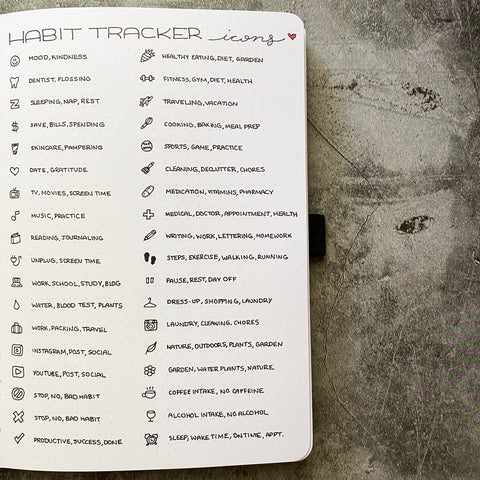 HABIT TRACKER icons
MOOD, KINDNESS
DENTIST, FLOSSING
SLEEPING, NAP, REST
SAVE, BILLS, SPENDING
SKINCARE, PAMPERING
DATE, GRATITUDE
TV, MOVIES, SCREEN TIME
MUSIC, PRACTICE
READING, JOURNALING
UNPLUG, SCREEN TIME
WORK, SCHOOL, STUDY, BLOG
WATER, BLOOD TEST, PLANTS
WORK, PACKING, TRAVEL
INSTAGRAM, POST, SOCIAL
YOUTUBE, POST, SOCIAL
STOP, NO, BAD HABIT
STOP, NO, BAD HABIT
PRODUCTIVE, SUCCESS, DONE
HEALTHY EATING, DIET, GARDEN
FITNESS, GYM, DIET, HEALTH
TRAVELING, VACATION
COOKING, BAKING, MEAL PREP
SPORTS, GAME, PRACTICE
CLEANING, DECLUTTER, CHORES
MEDICATION, VITAMINS, PHARMACY
MEDICAL, DOCTOR, APPOINTMENT, HEALTH
WRITING, WORK, LETTERING, HOMEWORK
STEPS, EXERCISE, WALKING, RUNNING
PAUSE, REST, DAY OFF
DRESS-UP, SHOPPING, LAUNDRY
LAUNDRY, CLEANING, CHORES
NATURE, OUTDOORS, PLANTS, GARDEN
GARDEN, WATER PLANTS, NATURE
COFFEE INTAKE, NO CAFFEINE
ALCOHOL INTAKE, NO ALCOHOL
SLEEP, WAKE TIME, ON TIME, APPT.